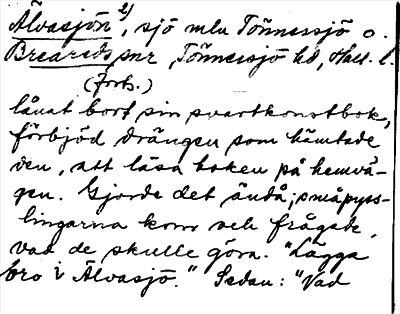 Älvasjön 2), sjö mln Tönnersjö o.
Breareds snr, Tönnersjö hd, Hall. l.
(Forts.)
lånat bort sin svartkonstbok,
förbjöd drängen som hämtade
den, att läsa boken på hemvä-
gen. Gjorde det ändå; småpyss-
lingarna kom och frågade,
vad de skulle göra. "Lägga
bro i Älvasjö." Sedan: "Vad